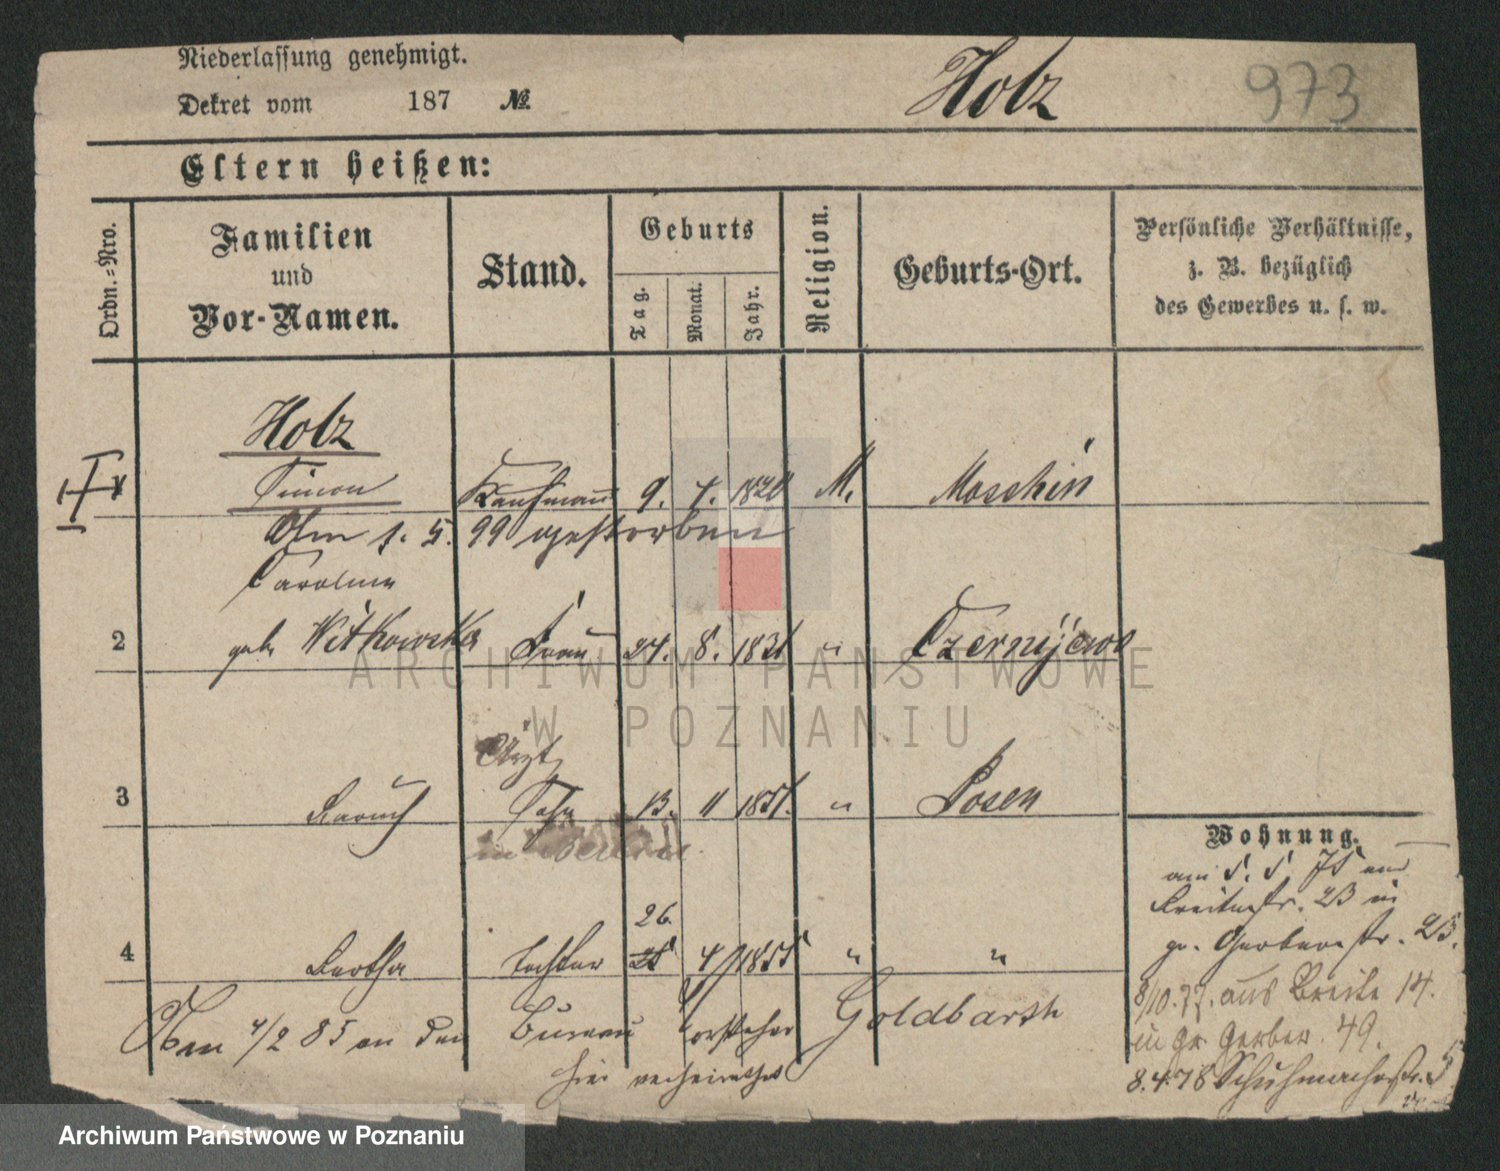 Niederlassung genehmigt.
Dekret vom 187 №
Holz
973
Eltern heißen:
Ordn.=Nro.
Familien
und
Vor-Namen.
Stand.
Geburts
Tag.
Monat.
Jahr.
Religion.
Geburts-Ort.
Persönliche Verhältnisse,
z. B. bezüglich
des Gewerbes u. s. w.
Holz
Simon Kaufmann 9. 7. M. Moschin
Am 1. 5. 99 gestorben
Caroline
2 geb. Witkowska Frau 24. 8. 1831 " Czernijewo
Arzt
3 Baruch Sohn 13. 11 1851. " Posen
in Berlin
26.
4 Bertha Tochter 25 4 1855 " "
Am 4/2 85 an den Bureau Vorsteher Goldbarth
hier verheirathet
Wohnung.
am 5. 5. 75 aus
Breitestr. 23 in
gr. Gerberstr. 23.
8/10.77. aus Breite 14.
in Gr. Gerber. 49.
8.4.78 Schuhmacherstr. 5
ARCHIWUM PAŃSTWOWE
W POZNANIU
Archiwum Państwowe w Poznaniu